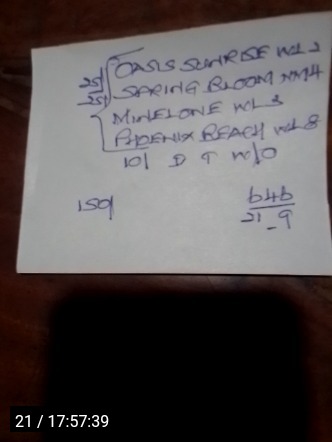 25/ OASIS SUNRISE WOL 2
25/ SPRING BLOOM NM4
MINELONE WOL 3
PHOENIX BEACH WOL 8
10/ D T W/O
150/
646
21-9
21 / 17:57:39